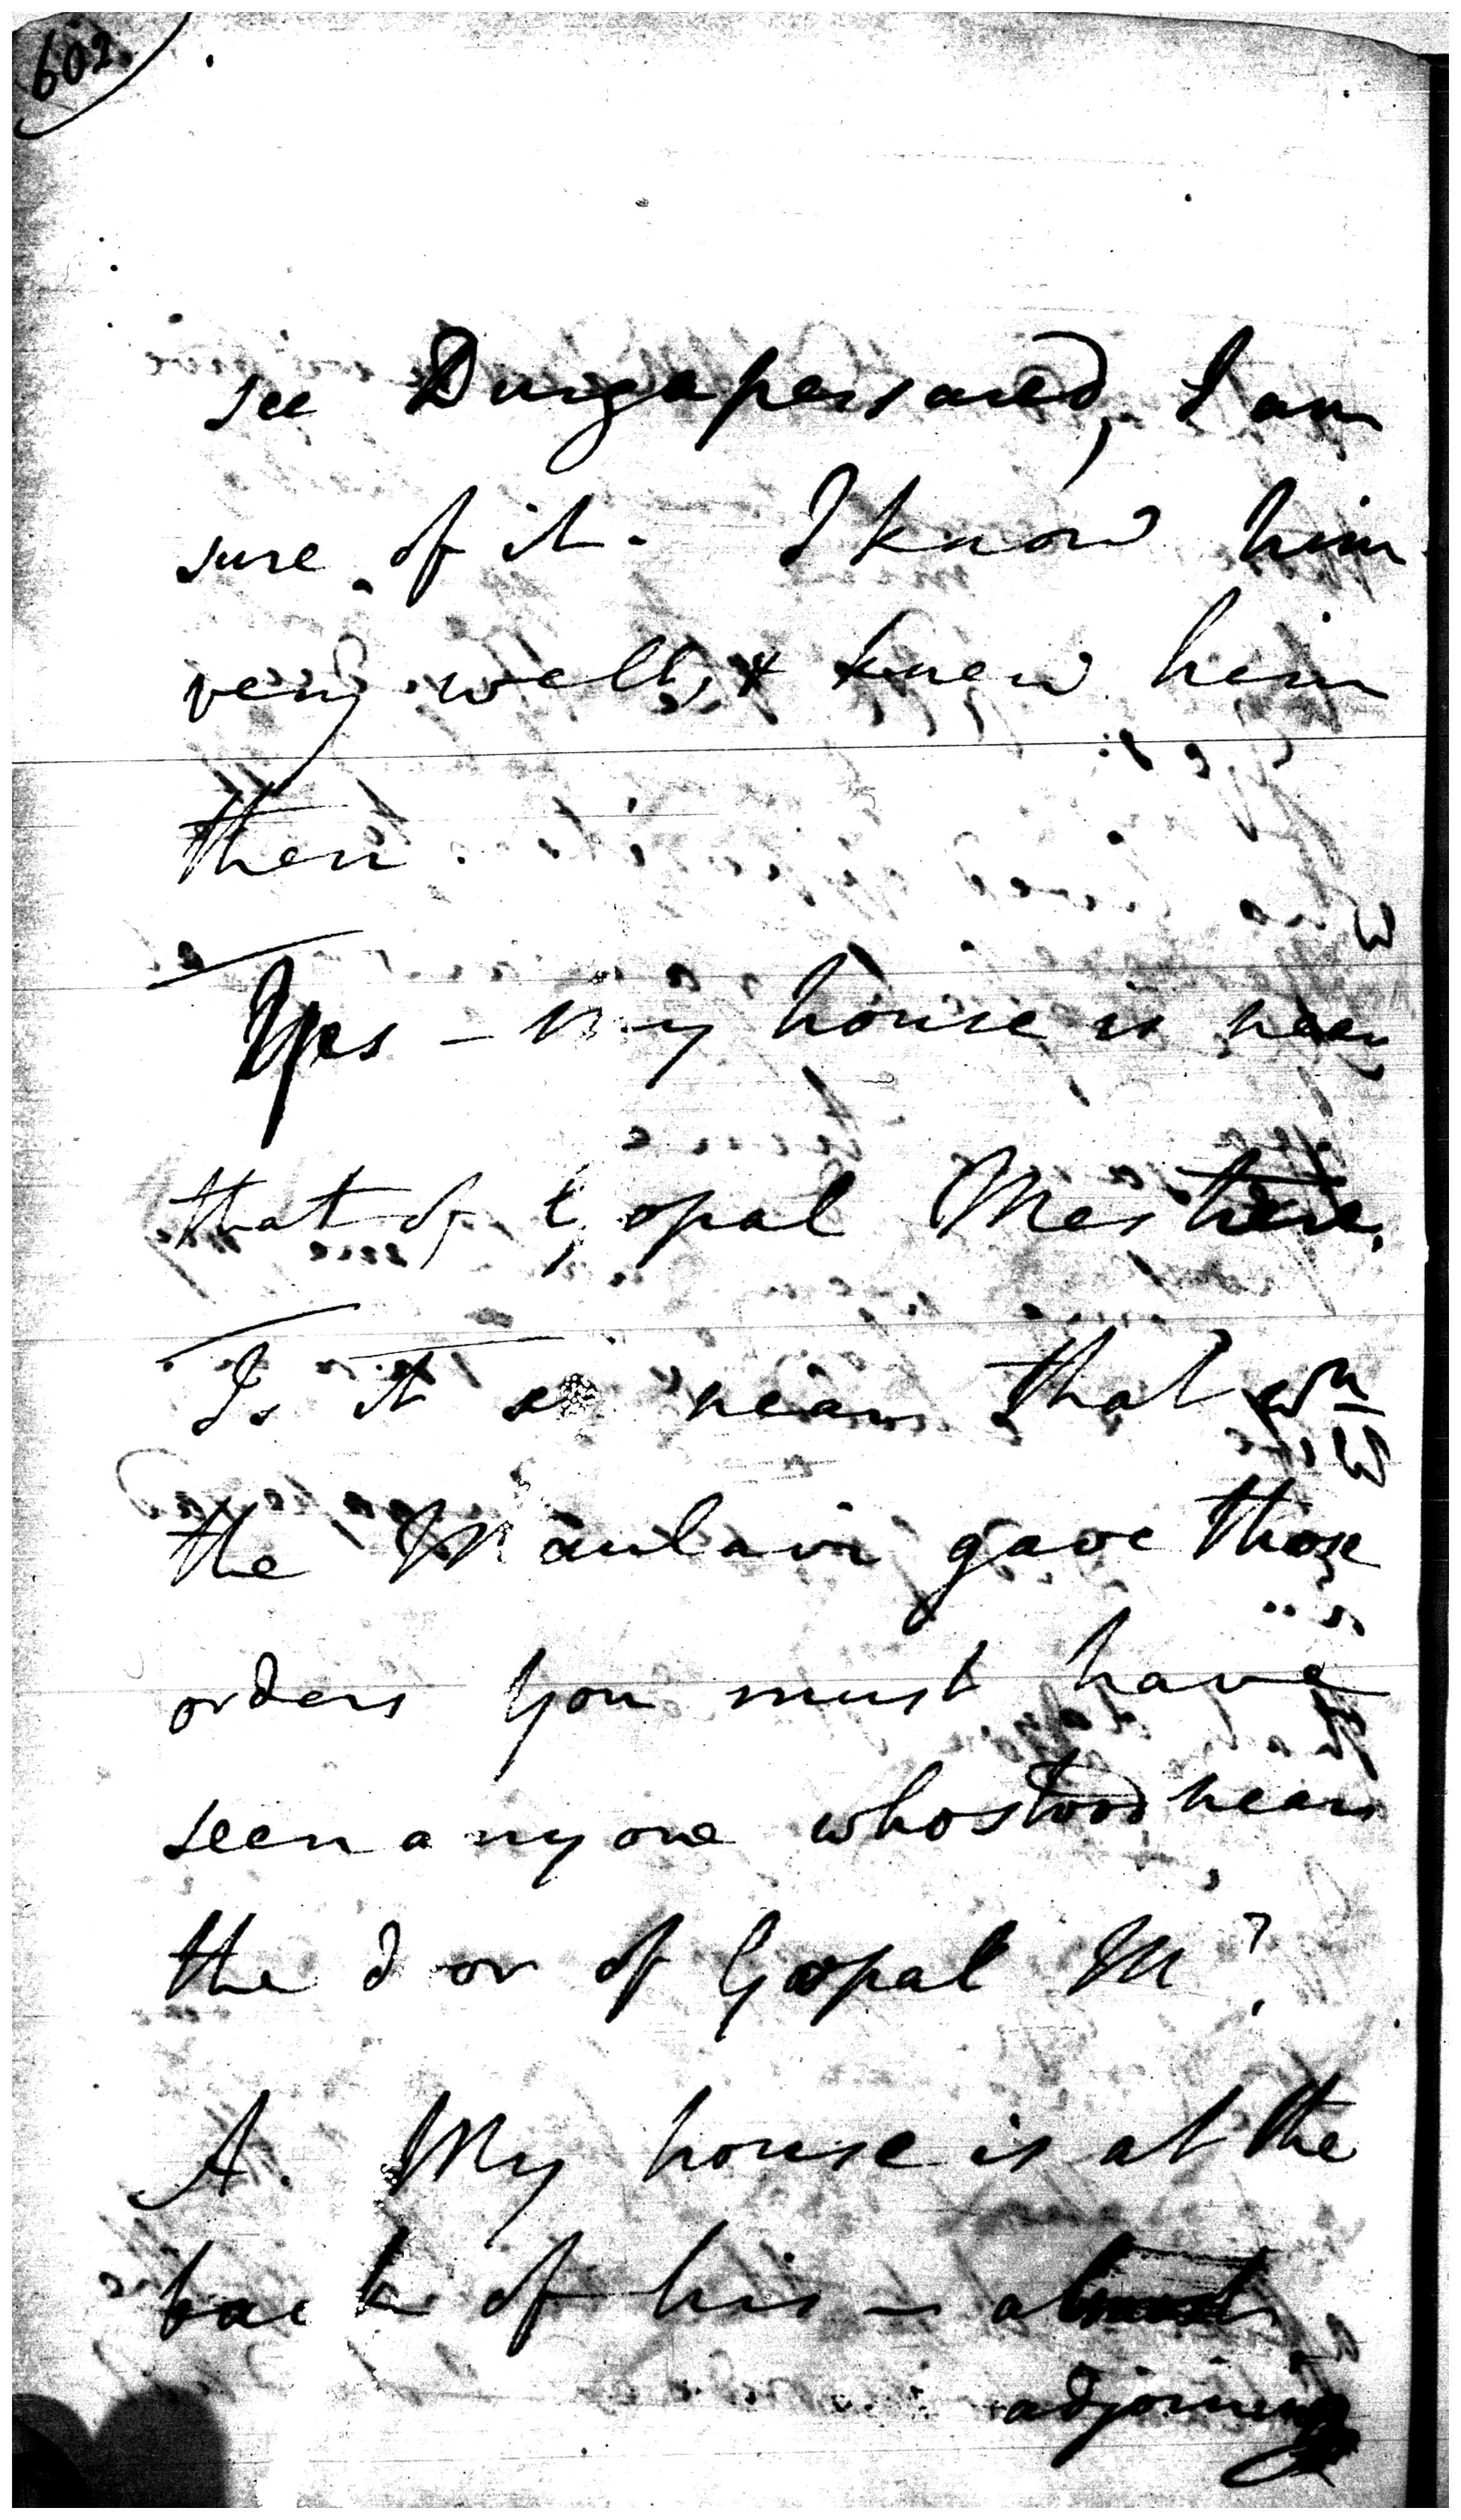 602.
see Durgapersaud, I am
sure of it. I know him
very well, & knew him
then.
Yes – My house is near
that of Gopal Mestree.
Is it so near that wn
the Maulavi gave those
orders you must have
seen anyone who stood near
the door of Gopal M?
A. My house is at the
back of his – almost
adjoining